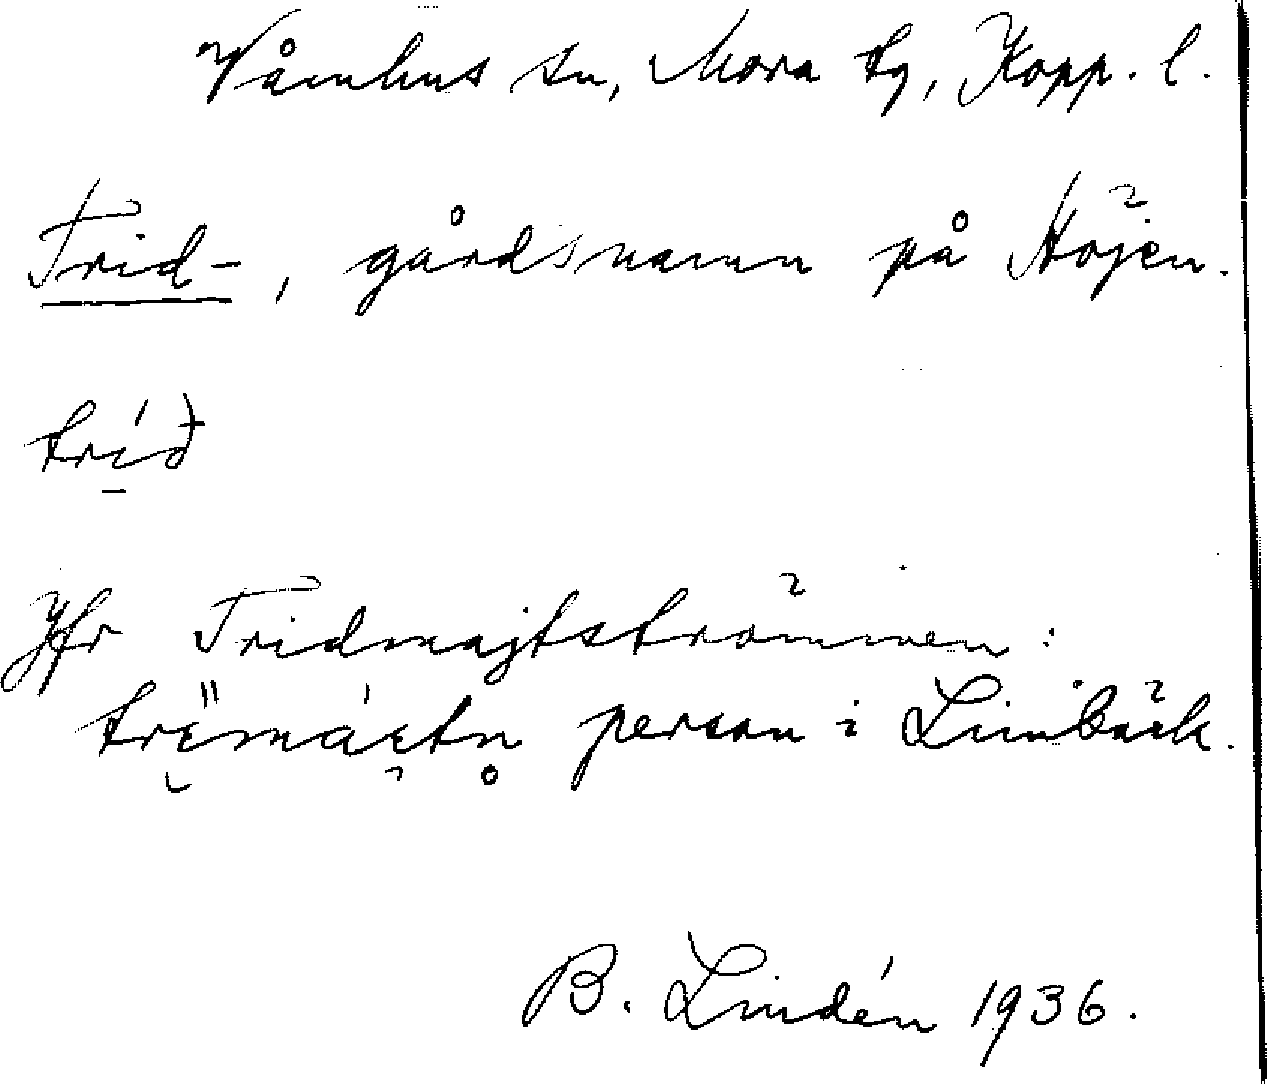 Våmhus sn, Mora tg, Kopp. l.
Trid-, gårdsnamn på Höjen.
tríð
Jfr Tridmajtströmmen:
person i Limbäck.
B. Lindén 1936.